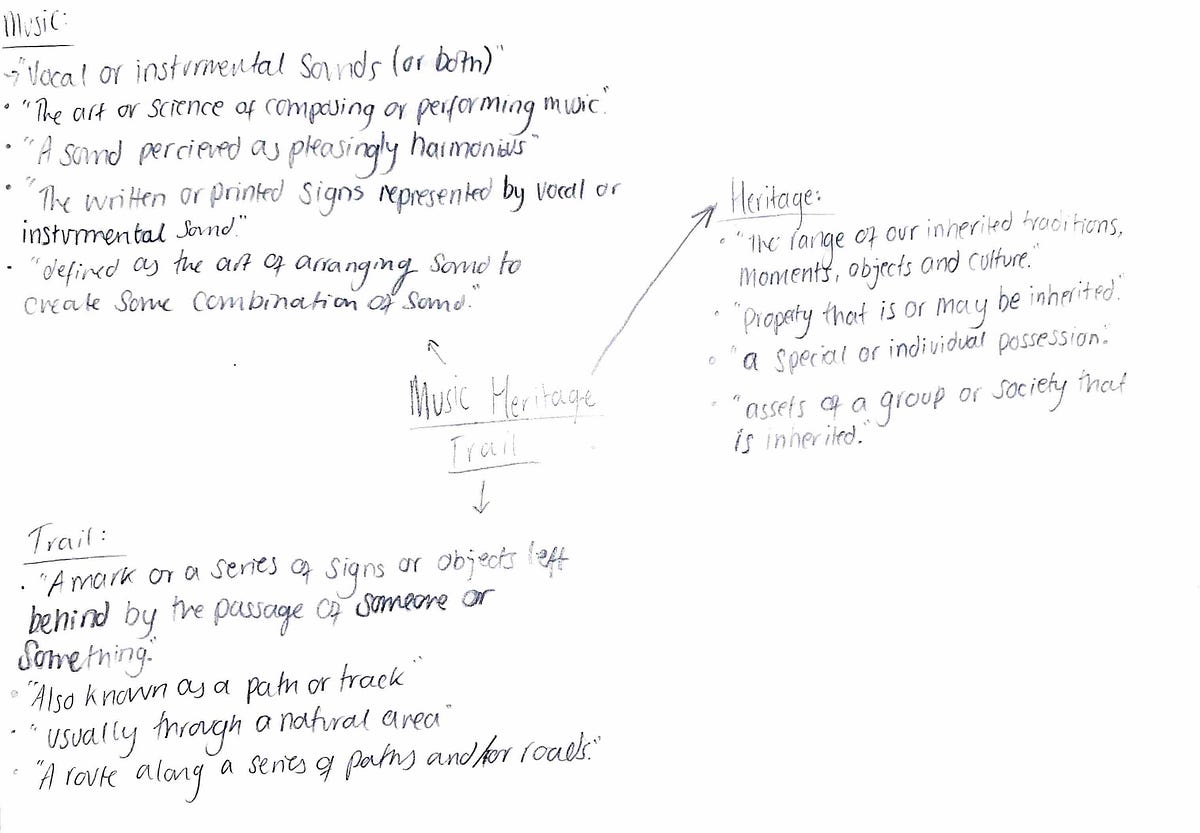 Music:
→ "Vocal or instrumental sounds (or both)"
• "The art or science of composing or performing music."
• "A sound percieved as pleasingly harmonius"
• "The written or printed signs represented by vocal or
instrumental sound."
• "defined as the art of arranging sound to
create some combination of sound."
Heritage:
• "The range of our inherited traditions,
moments, objects and culture."
• "Property that is or may be inherited."
• "a special or individual possession."
• "assets of a group or society that
is inherited."
Music Heritage
Trail
Trail:
• "A mark or a series of signs or objects left
behind by the passage of someone or
something."
• "Also known as a path or track"
• "usually through a natural area"
• "A route along a series of paths and/or roads."